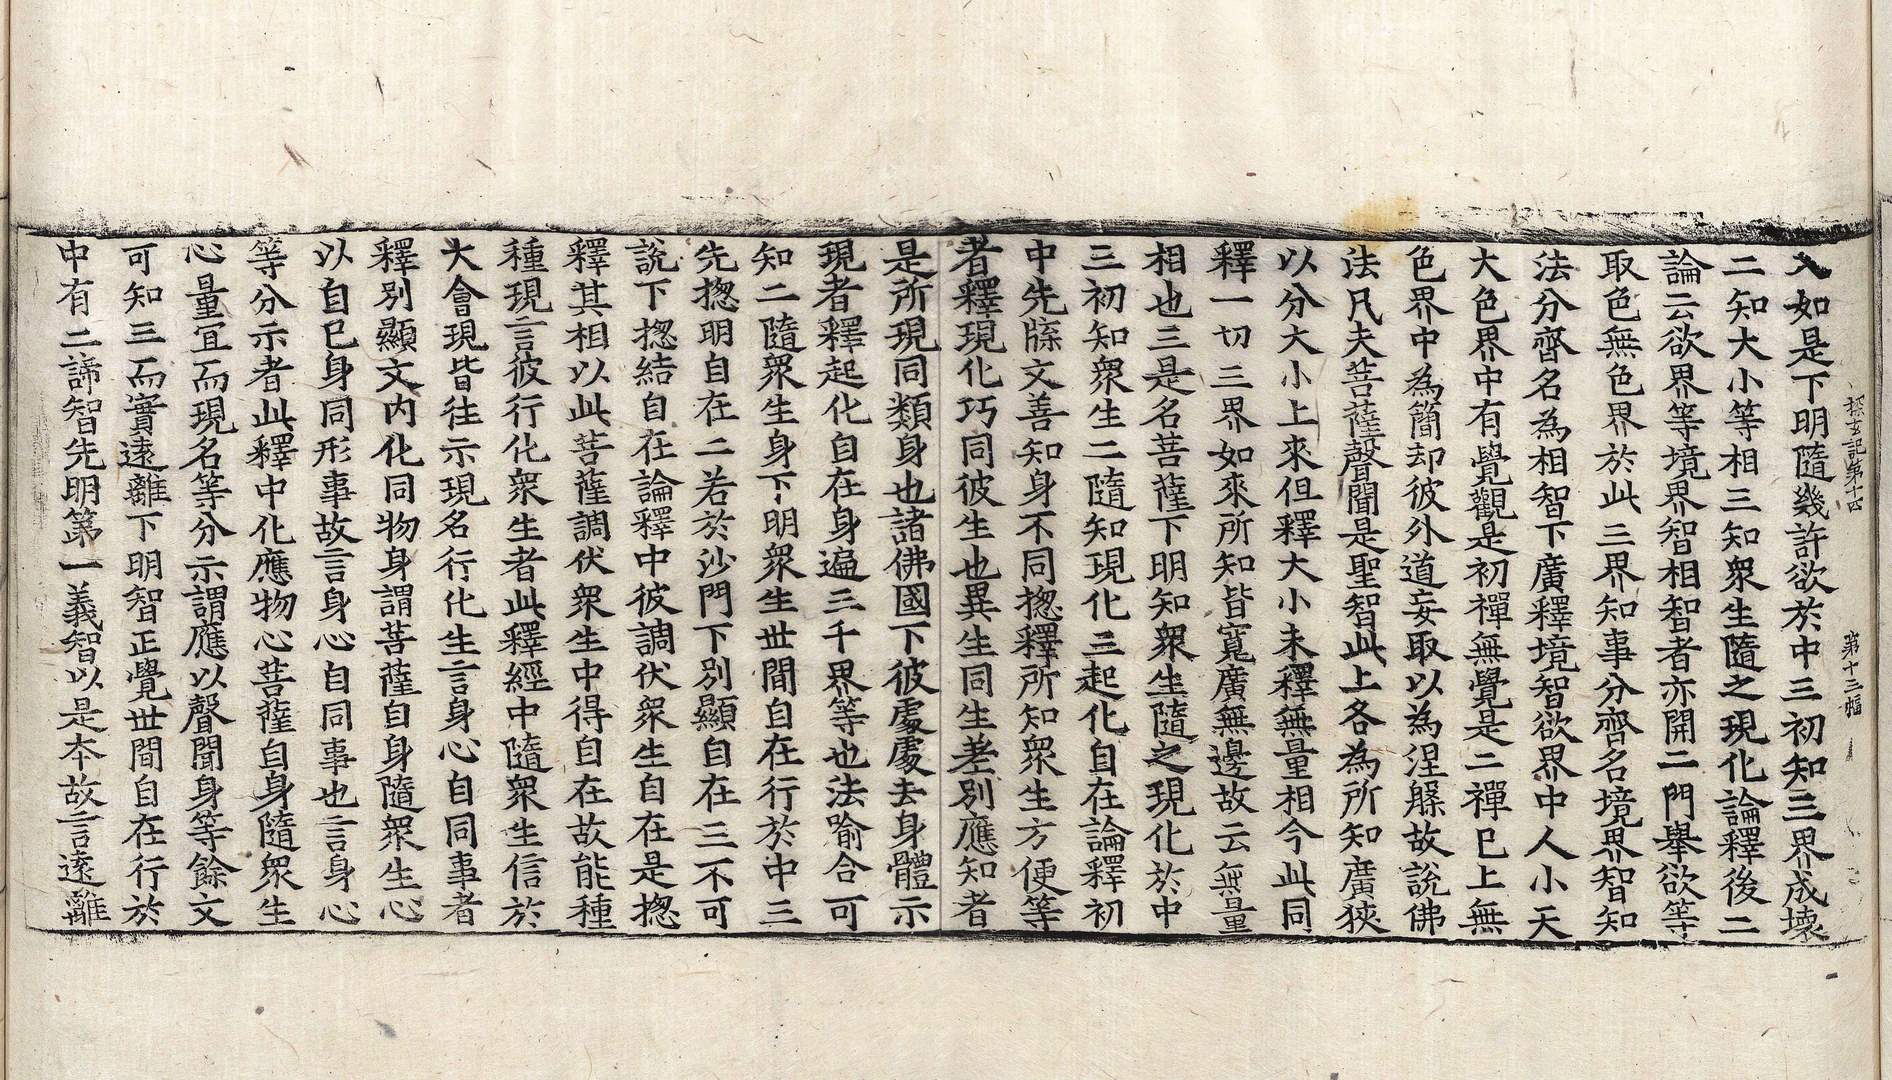 探玄記第十四 第十三幅
入如是下明隨幾許欲於中三初知三界成壞
二知大小等相三知衆生隨之現化論釋後二
論云欲界等境界智相智者亦開二門舉欲等
取色無色界於此三界知事分齊名境界智知
法分齊名為相智下廣釋境智欲界中人小天
大色界中有覺觀是初禪無覺是二禪已上無
色界中為簡却彼外道妄取以為涅槃故說佛
法凡夫菩薩聲聞是聖智此上各為所知廣狹
以分大小上來但釋大小未釋無量相今此同
釋一切三界如來所知皆寬廣無邊故云無量
相也三是名菩薩下明知衆生隨之現化於中
三初知衆生二隨知現化三起化自在論釋初
中先牒文善知身不同揔釋所知衆生方便等
者釋現化巧同彼生也異生同生差別應知者
是所現同類身也諸佛國下彼處處去身體示
現者釋起化自在身遍三千界等也法喻合可
知二隨衆生身下明衆生世間自在行於中三
先揔明自在二若於沙門下別顯自在三不可
說下揔結自在論釋中彼調伏衆生自在是揔
釋其相以此菩薩調伏衆生中得自在故能種
種現言彼行化衆生者此釋經中隨衆生信於
大會現皆往示現名行化生言身心自同事者
釋別顯文內化同物身謂菩薩自身隨衆生心
以自已身同形事故言身心自同事也言身心
等分示者此釋中化應物心菩薩自身隨衆生
心量宜而現名等分示謂應以聲聞身等餘文
可知三而實遠離下明智正覺世間自在行於
中有二諦智先明第一義智以是本故言遠離